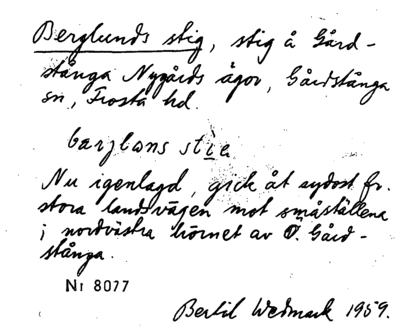 Berglunds stig, stig å Gård-
stånga Nygårds ägor, Gårdstånga
sn, Frosta hd.
Nu igenlagd, gick åt sydost fr.
stora landsvägen mot småställena
i nordvästra hörnet av Ö. Gård-
stånga.
Nr 8077
Bertil Wedmark 1959.